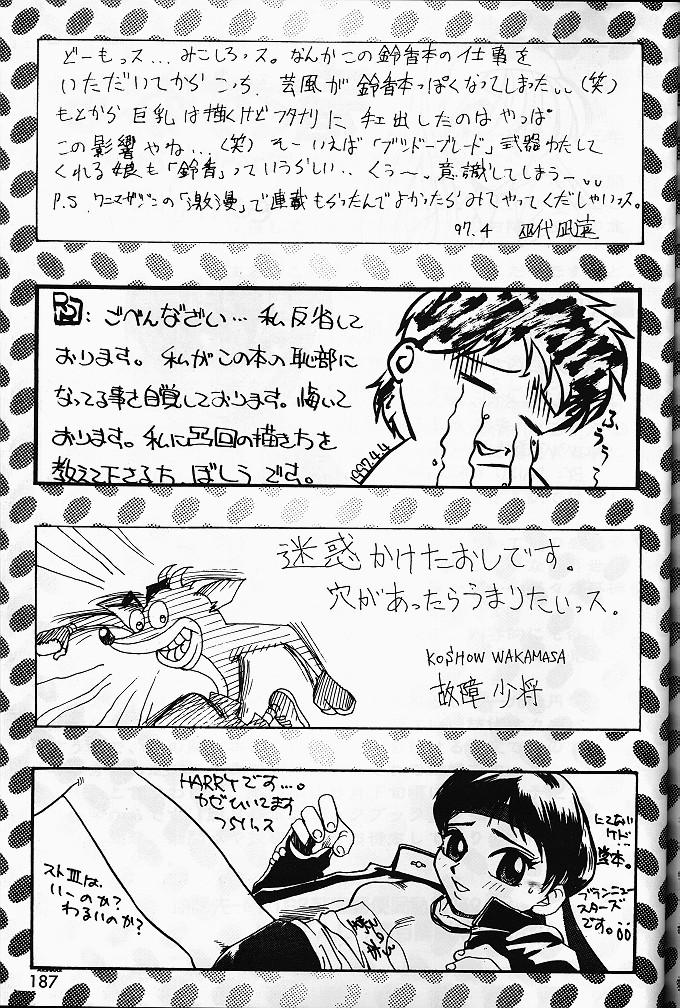 どーもっス…みこしろっス。なんかこの鈴香本の仕事を
いただいてからこっち、芸風が鈴香本っぽくなってしまった。。(笑)
もとから巨乳は描くけどフタナリに、チェ出したのはやっぱ
この影響やね…(笑)そーいえば「ブシドーブレード」武器わたして
くれる娘も「鈴香」っていうらしい..くぅ〜、意識してしまうー。。
P.S.ワニマガジンの「激漫」で連載もらったんでよかったらみてやってくだしゃいっス。
97.4 巫代凪遠
:ごべんなざい…私反省して
おります。私がこの本の恥部に
なってる事を自覚しております。悔いて
おります。私に凸凹の描き方を
教えて下さる方、ぼしうです。
1997.4.4
ふぅぅ〜
迷惑かけたおしです。
穴があったらうまりたいっス。
KOSHOW WAKAMASA
故障少将
HARRYです…。
かぜひいてます
つらいっス
ストIIIは、
いいのか?
わるいのか?
にてない
けど
ブランニュー
スターズ
です。
187